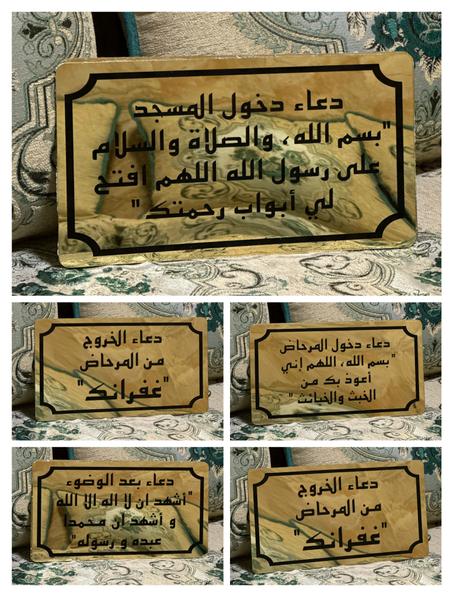 دعاء دخول المسجد
"بسم الله، والصلاة والسلام
على رسول الله اللهم افتح
لي أبواب رحمتك"
دعاء الخروج
من المرحاض
"غفرانك"
دعاء دخول المرحاض
"بسم الله، اللهم إني
أعوذ بك من
الخبث والخبائث"
دعاء بعد الوضوء
"أشهد ان لا اله الا الله
و أشهد ان محمدا
عبده و رسوله"
دعاء الخروج
من المرحاض
"غفرانك"